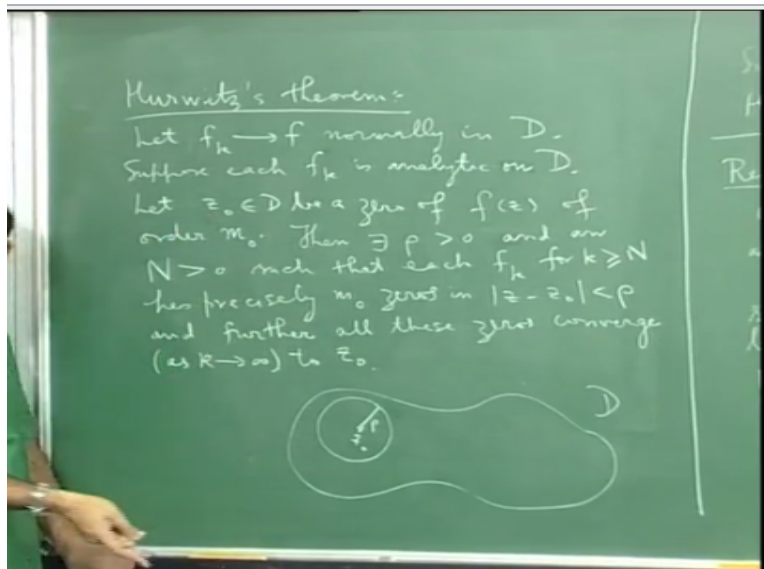 Hurwitz's theorem:
Let fₖ → f normally in D.
Suppose each fₖ is analytic on D.
Let z₀ ∈ D be a zero of f(z) of
order m₀. Then ∃ ρ > 0 and an
N > 0 such that each fₖ for k ≥ N
has precisely m₀ zeros in |z - z₀| < ρ
and further all these zeros converge
(as k → ∞) to z₀.
D
ρ
z₀
Re